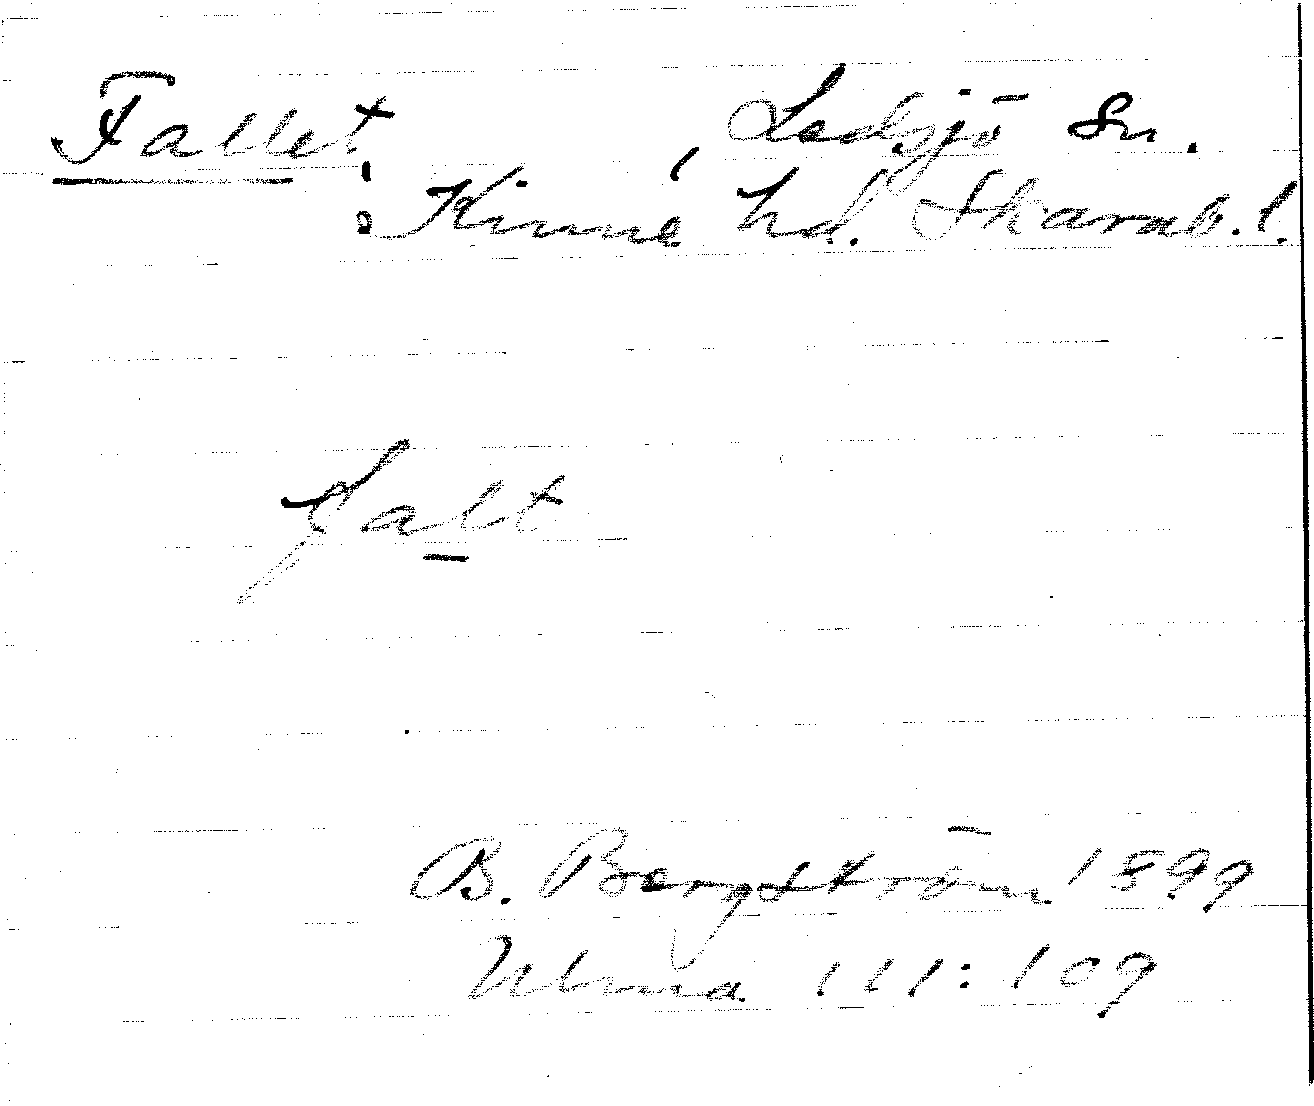 Fallet, Ledsjö sn.
Kinne hd. Skarab. l.
falt
B. Bergström 1899
Ulma 111:109